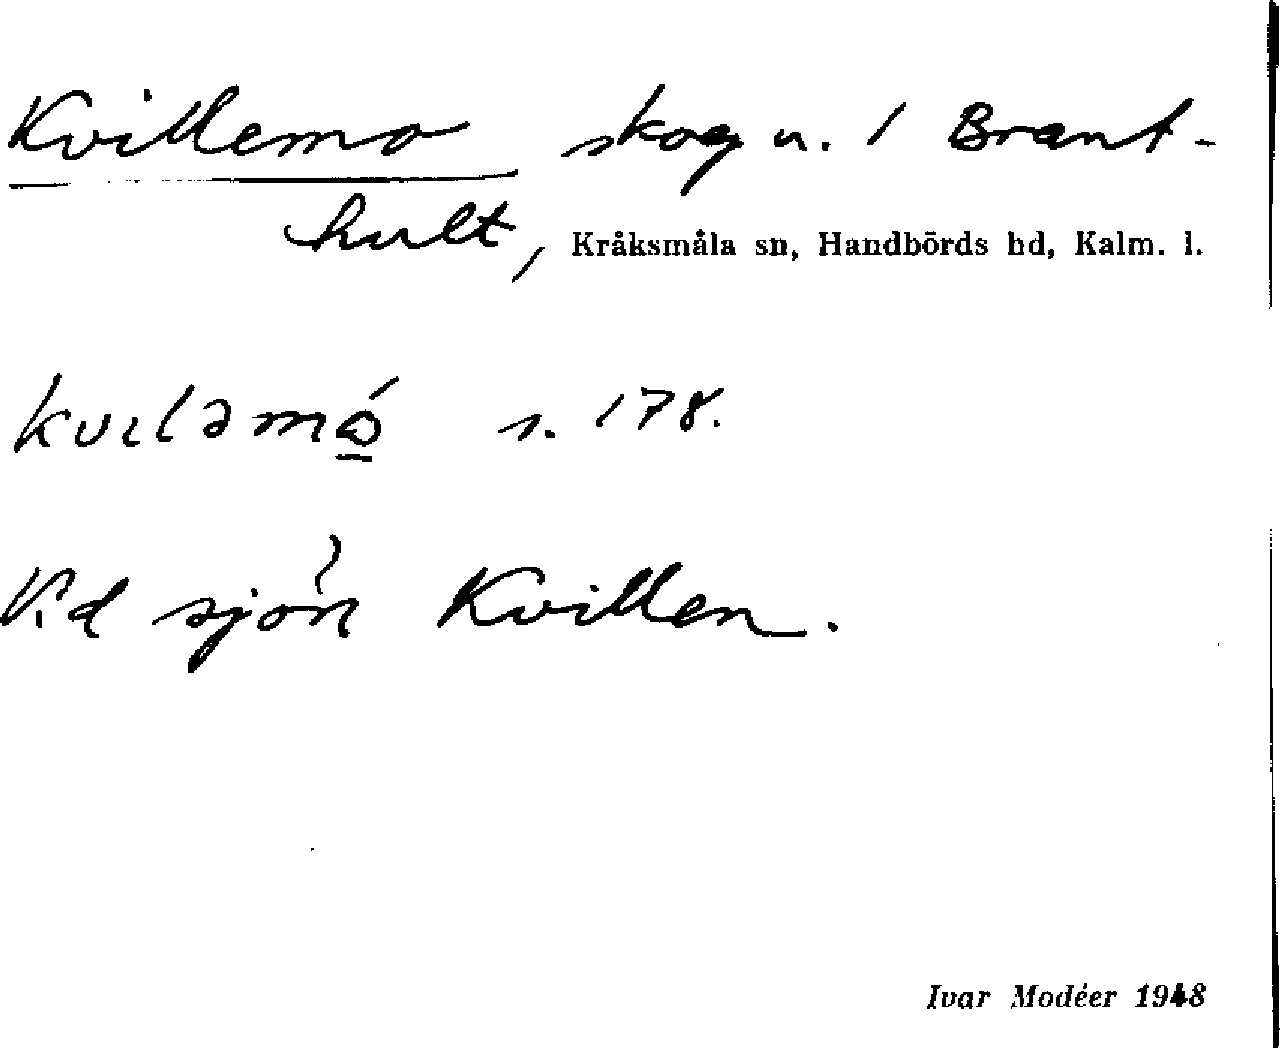 Kvillemo skog u. 1 Brant-
hult, Kråksmåla sn, Handbörds hd, Kalm. l.
s. 178.
Vid sjön Kvillen.
Ivar Modéer 1948